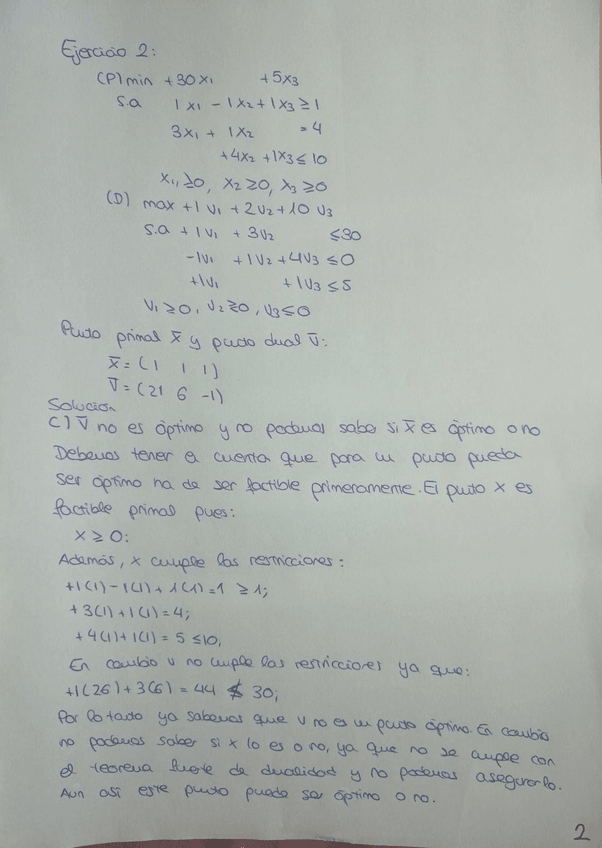 Ejercicio 2:
(P) min +30x₁ +5x₃
s.a 1x₁ - 1x₂ + 1x₃ ≥ 1
3x₁ + 1x₂ = 4
+4x₂ + 1x₃ ≤ 10
x₁, ≥0, x₂ ≥0, x₃ ≥0
(D) max +1 v₁ + 2v₂ + 10 v₃
s.a +1v₁ + 3v₂ ≤30
-1v₁ +1v₂ +4v₃ ≤0
+1v₁ +1v₃ ≤5
v₁ ≥0, v₂ ≥0, v₃≤0
Punto primal x̄ y punto dual v̄:
x̄ = (1 1 1)
v̄ = (21 6 -1)
Solución
C) v̄ no es óptimo y no podemos saber si x̄ es óptimo o no
Debemos tener en cuenta que para un punto pueda
ser óptimo ha de ser factible primeramente. El punto x es
factible primal pues:
x ≥ 0:
Además, x cumple las restricciones:
+1(1) - 1(1) + 1(1) = 1 ≥ 1;
+3(1) + 1(1) = 4;
+4(1) + 1(1) = 5 ≤10,
En cambio v no cumple las restricciones ya que:
+1(26) + 3(6) = 44 ≰ 30;
Por lo tanto ya sabemos que v no es un punto óptimo. En cambio
no podemos saber si x lo es o no, ya que no se cumple con
el teorema fuerte de dualidad y no podemos asegurarlo.
Aun así este punto puede ser óptimo o no.
2